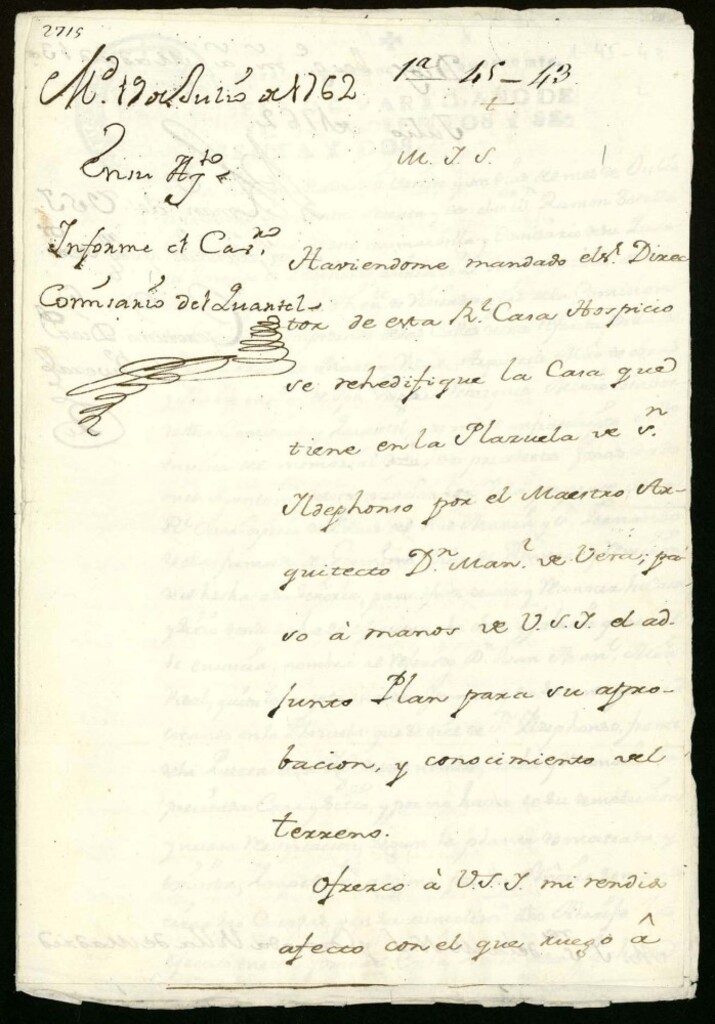 2715
M.d 19 de Julio de 1762
1ª-45-43
En su Ay.to
M. I. S.
Informe el Cav.ro
Comisario del Quartel
Haviendome mandado el S.r Direc
tor de esta R.l Casa Hospicio
se rehedifique la Casa que
tiene en la Plazuela de S.n
Ildephonso por el Maestro Ar-
quitecto D.n Man.l de Vera; pa
so à manos de V.S.I. el ad-
junto Plan para su apro-
bacion, y conocimiento del
terreno.
Ofrezco à V.S.I. mi rendido
afecto con el que ruego â